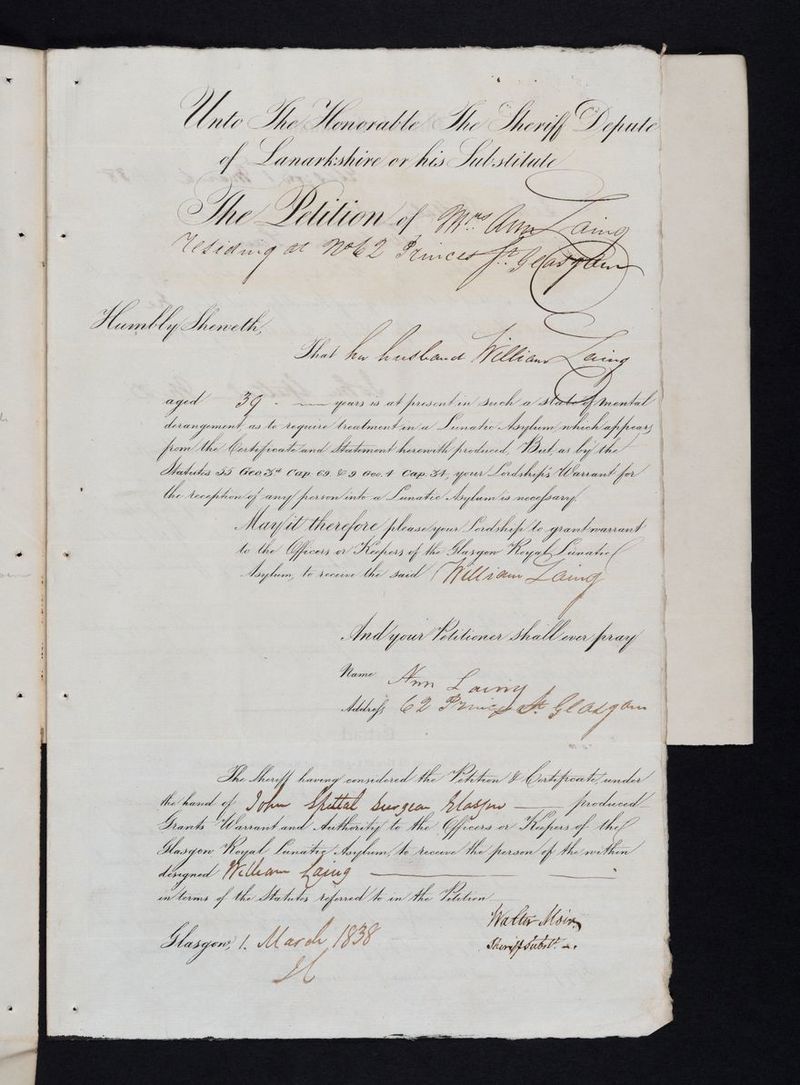 Unto The Honorable The Sheriff Depute
of Lanarkshire or his Substitute
The Petition of Mrs. Ann Laing
residing at No 62 Princes St. Glasgow
Humbly Sheweth,
That her husband William Laing
aged 39 years is at present in such a state of mental
derangement, as to require treatment in a Lunatic Asylum, which appears
from the Certificate and Statement herewith produced, But, as by the
Statutes 55 Geo. 3d. Cap. 69. & 9 Geo. 4 Cap. 34, your Lordship's Warrant for
the reception of any person into a Lunatic Asylum is necessary.
May it therefore please your Lordship to grant warrant
to the Officers or Keepers of the Glasgow Royal Lunatic
Asylum, to receive the said William Laing
And your Petitioner shall ever pray
Name Ann Laing
Address 62 Princes St. Glasgow
The Sheriff having considered the Petition & Certificate, under
the hand of John Spittal Surgeon Glasgow produced
Grants Warrant and Authority to the Officers or Keepers of the
Glasgow Royal Lunatic Asylum, to receive the person of the within
designed William Laing
in terms of the Statutes referred to in the Petition
Walter Moir
Glasgow, 1. March 1838
Sheriff Subst.